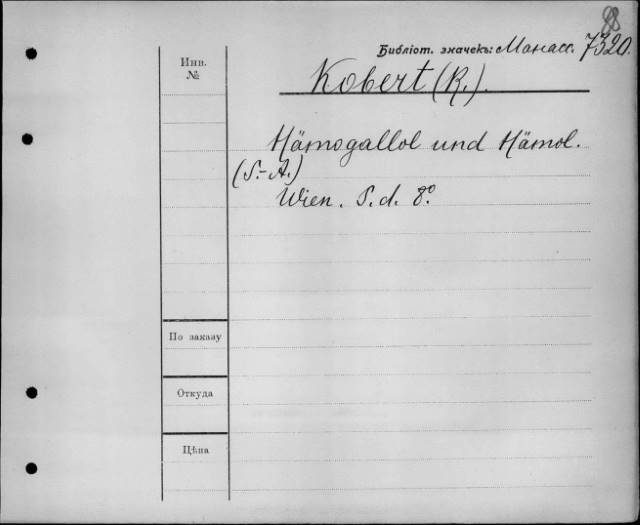 88
Библіот. значекъ: Манасс. 7320.
Инв.
№
Kobert (R.).
Hämogallol und Hämol.
(S.-A.)
Wien. S. d. 8°.
По заказу
Откуда
Цѣна